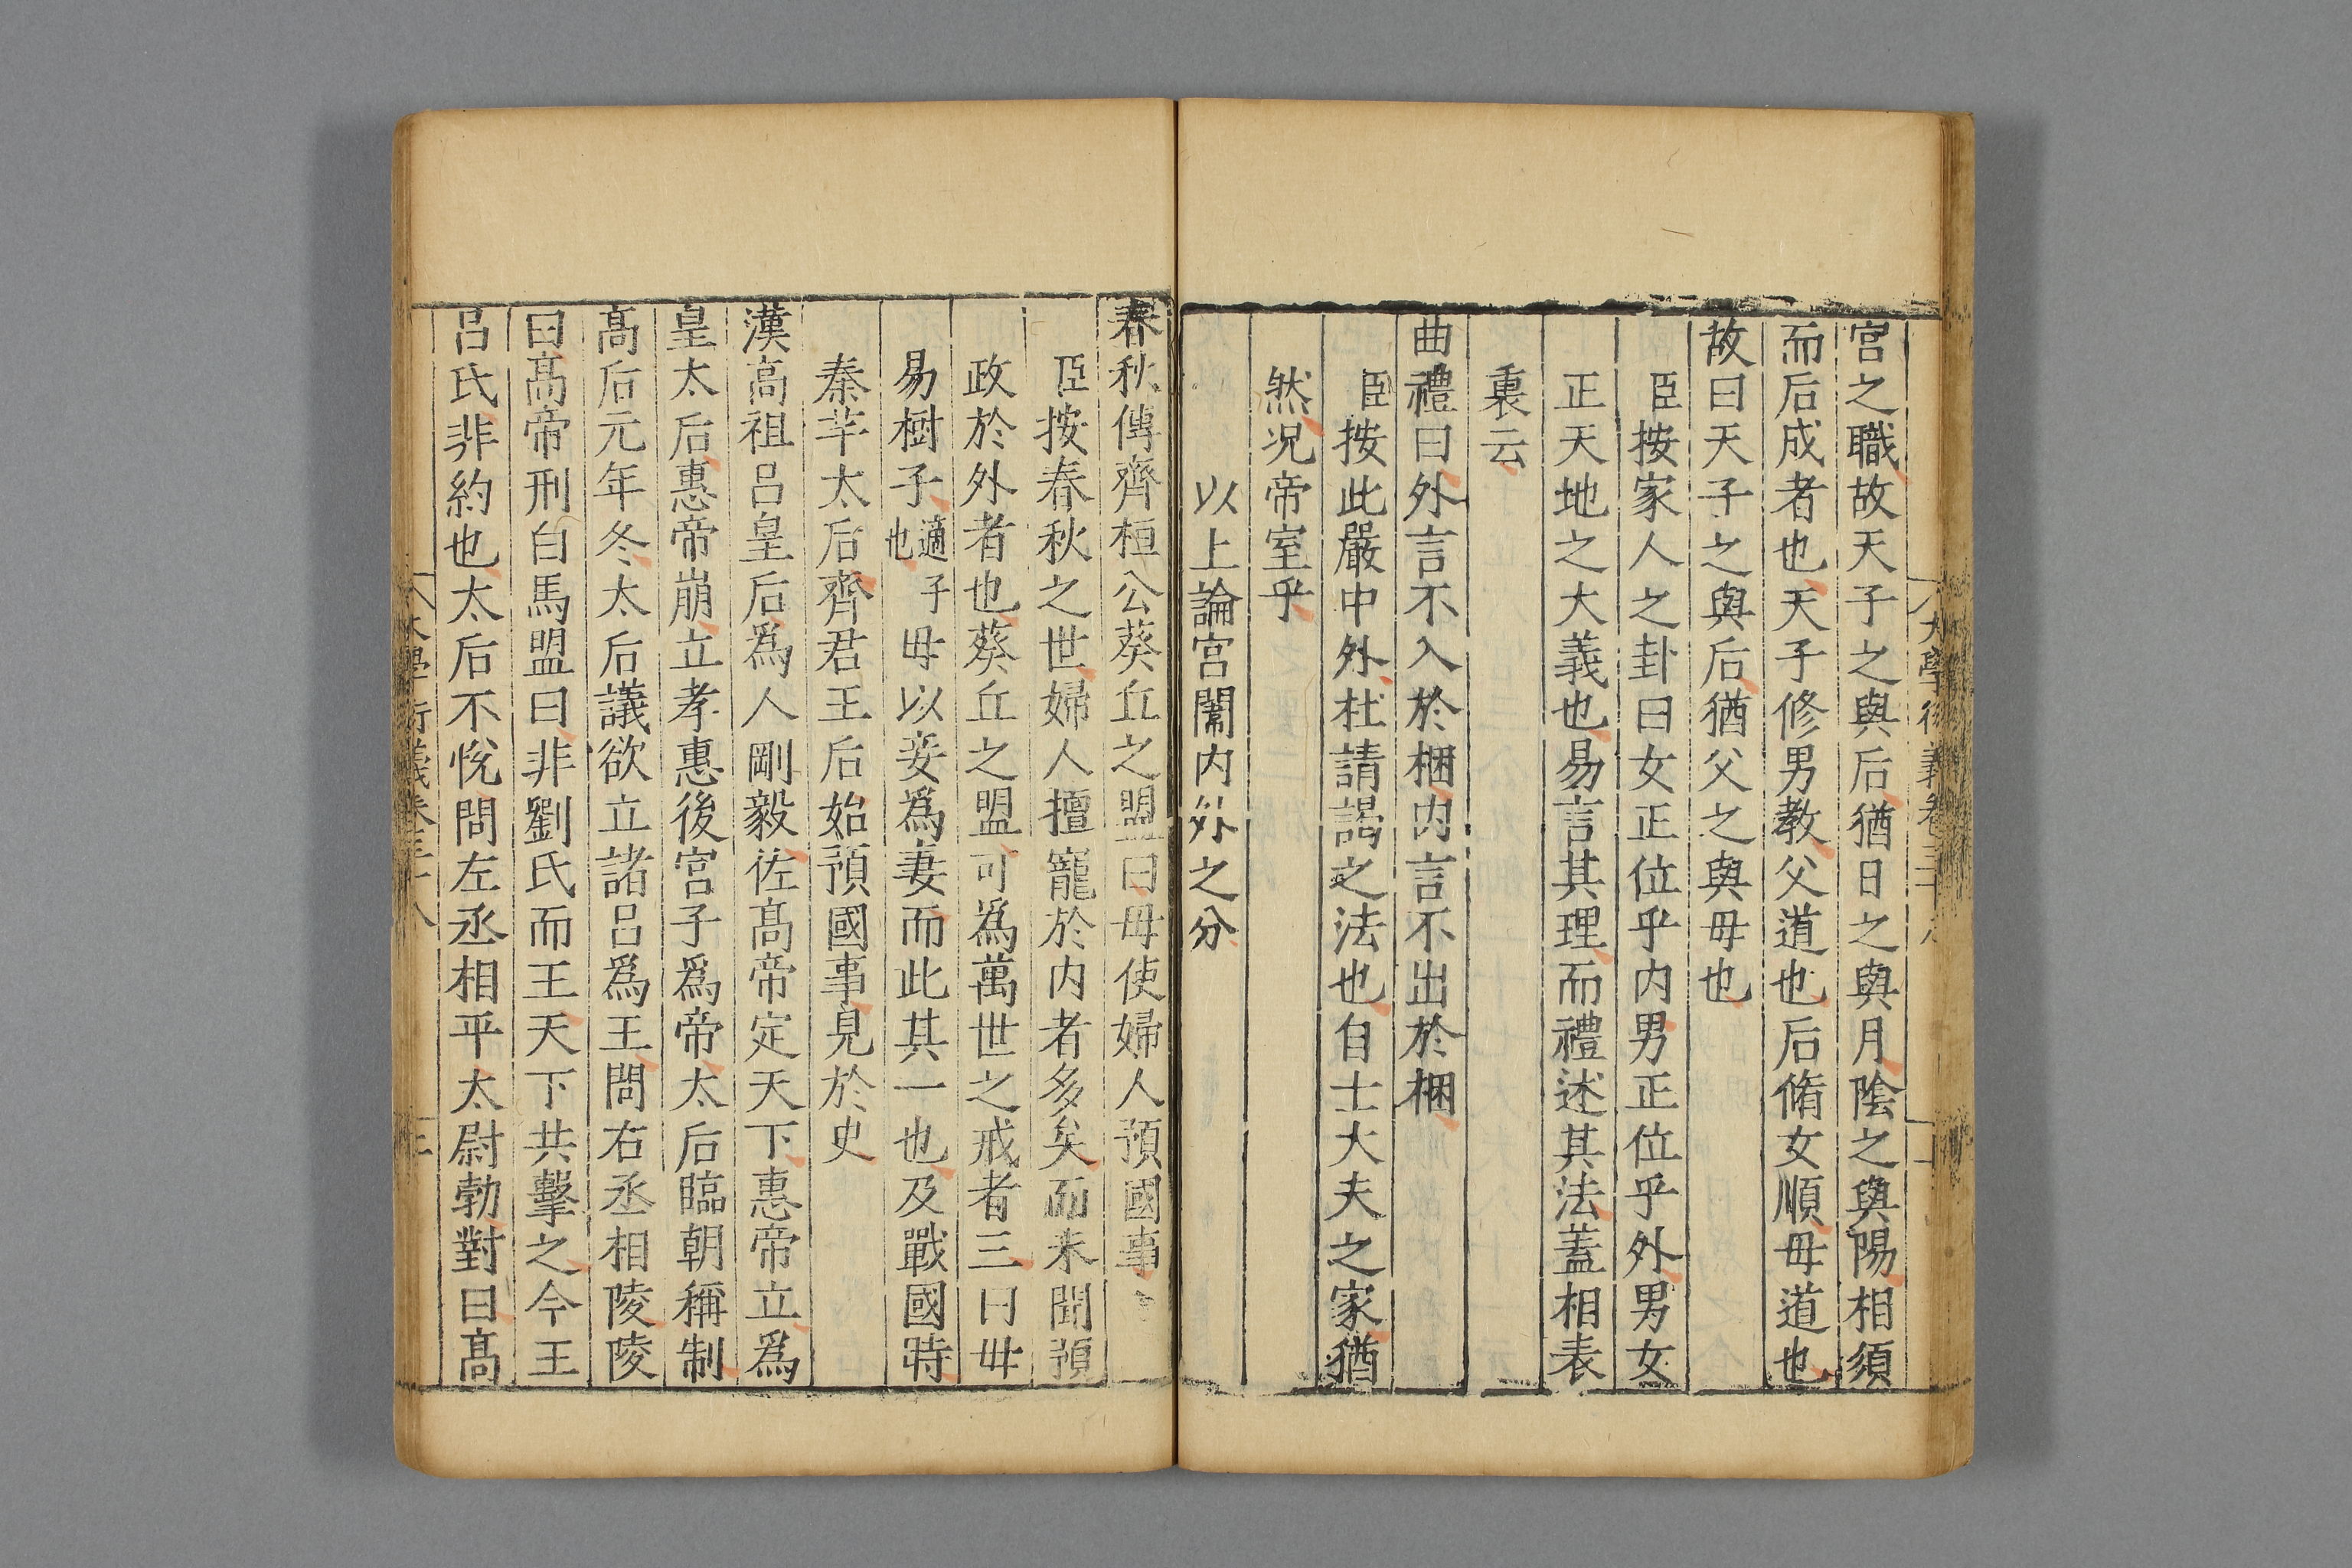 宮之職故天子之與后猶日之與月陰之與陽相須
而后成者也天子修男教父道也后脩女順毋道也
故曰天子之與后猶父之與毋也
臣按家人之卦曰女正位乎内男正位乎外男女
正天地之大義也易言其理而禮述其法蓋相表
裏云
曲禮曰外言不入於梱内言不出於梱
臣按此嚴中外杜請謁之法也自士大夫之家猶
然况帝室乎
以上論宮闈内外之分
春秋傳齊桓公葵丘之盟曰毋使婦人預國事
臣按春秋之世婦人擅寵於内者多矣而未聞預
政於外者也葵丘之盟可爲萬世之戒者三曰毋
易樹子適子也毋以妾爲妻而此其一也及戰國時
秦芊太后齊君王后始預國事見於史
漢高祖呂皇后爲人剛毅佐髙帝定天下惠帝立爲
皇太后惠帝崩立孝惠後宮子爲帝太后臨朝稱制
髙后元年冬太后議欲立諸呂爲王問右丞相陵陵
曰髙帝刑白馬盟曰非劉氏而王天下共擊之今王
呂氏非約也太后不悅問左丞相平太尉勃對曰髙
大學衍義卷三十八